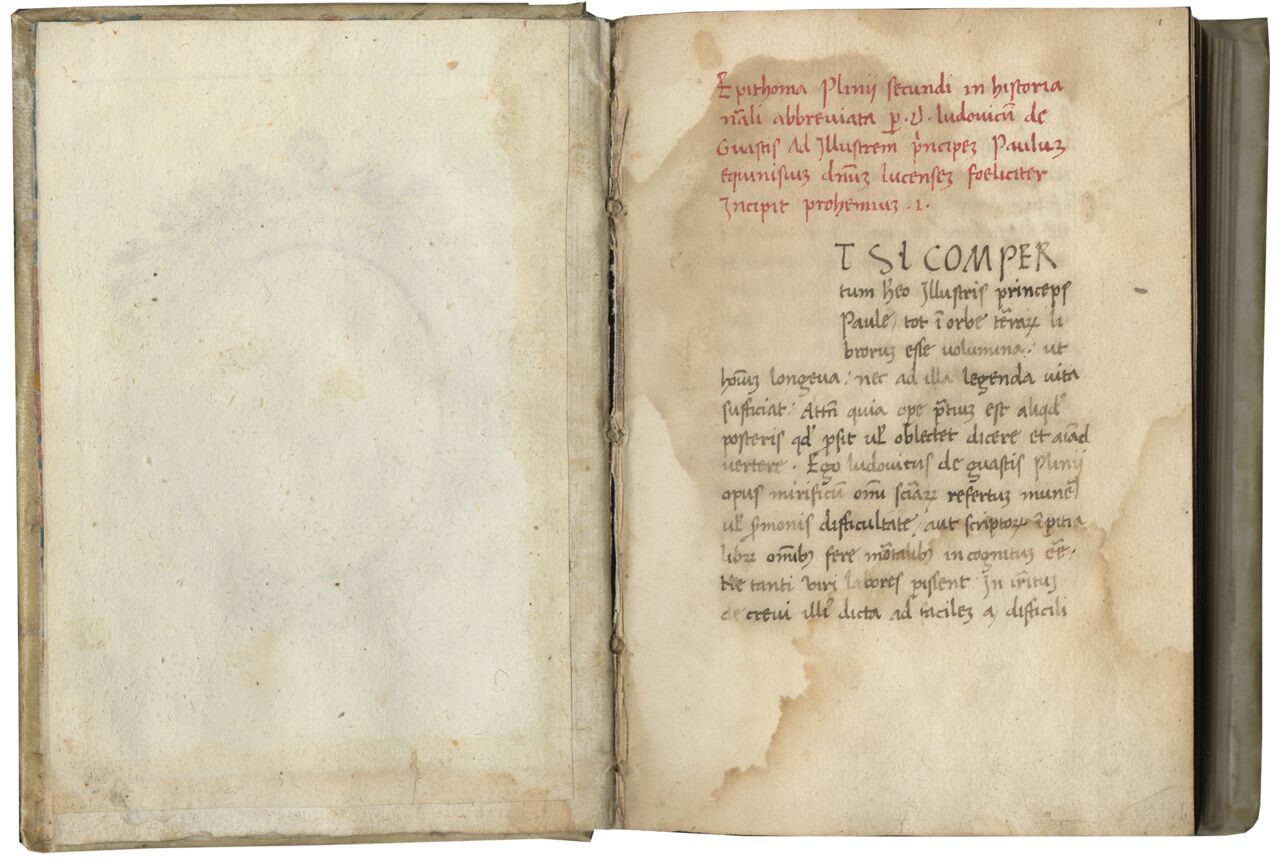 1
Epithoma Plinij secundi in historia
nãli abbreviata p̱ .d. ludovicũ de
Guastis Ad Jllustrem̃ pͥncipeʒ Pauluʒ
equinisiuʒ dñuʒ lucenseʒ foeliciter
Jncipit prohemiuʒ .1.
T SI COMPER
tum h̃eo Jllustris princeps
Paule, tot ĩ orbe tẽrarꝝ li
broruʒ esse uolumina: ut
hoĩuʒ longeua: nec ad illa legenda uita
sufficiat: Attñ quia ope p̃tiuʒ est aliqd'
posteris qd' ꝓsit ul' oblectet dicere et
vertere. Ego ludovicus de guastis Plinij
opus mirificũ omĩ sciẽarꝝ refertuʒ
ul' s̃monis difficultate, aut scriptorꝝ ĩpitia
librꝝ omĩbꝫ fere mõtalibꝫ incognituʒ eẽ:
Ne tanti viri labores ꝑissent. Jn
decrevi illiꝰ dicta ad facileʒ a, difficili